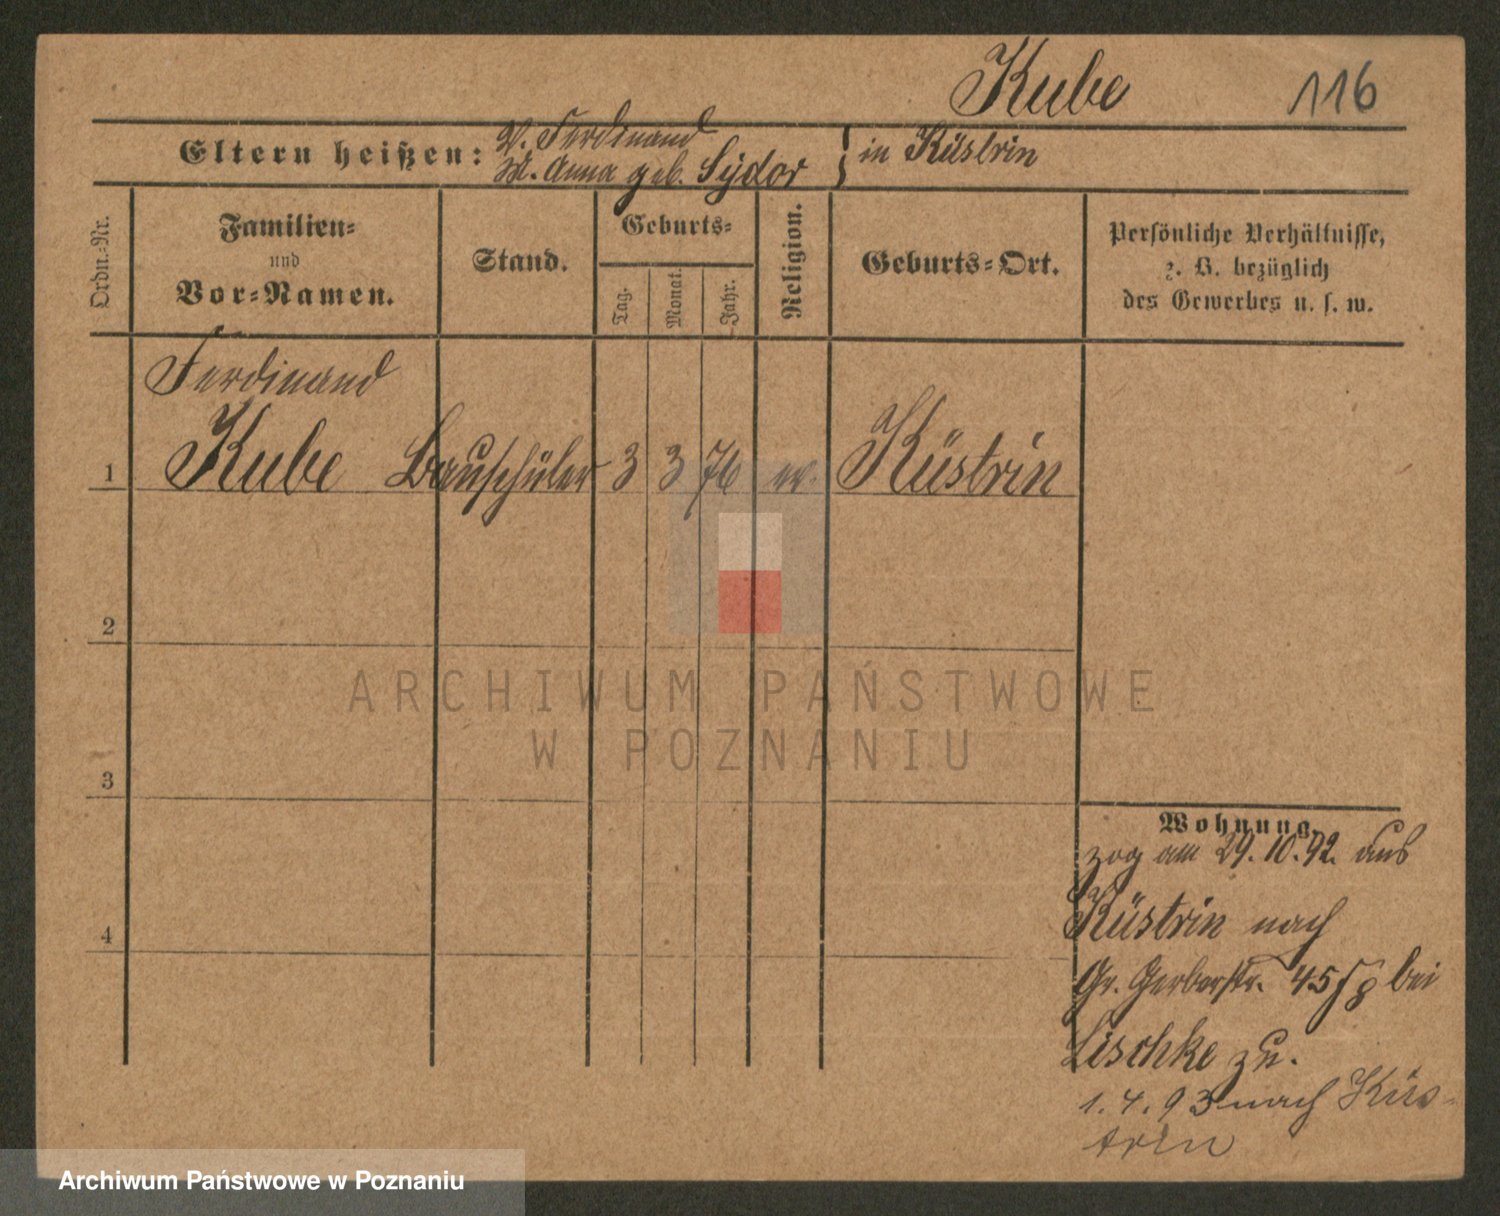 Kube 116
Eltern heißen: V. Ferdinand
M. Anna geb. Sydor } in Küstrin
Ordn.=Nr.
Familien=
und
Vor=Namen.
Stand.
Geburts=
Tag.
Monat.
Jahr.
Religion.
Geburts=Ort.
Persönliche Verhältnisse,
z. B. bezüglich
des Gewerbes u. s. w.
Ferdinand
1 Kube Bauschüler 3 3 76 ev. Küstrin
2
3
4
Wohnung.
zog am 29.10.92. aus
Küstrin nach
Gr. Gerberstr. 45 bei
Lischke zu.
1.4.93 nach Küs-
trin
ARCHIWUM PAŃSTWOWE
W POZNANIU
Archiwum Państwowe w Poznaniu